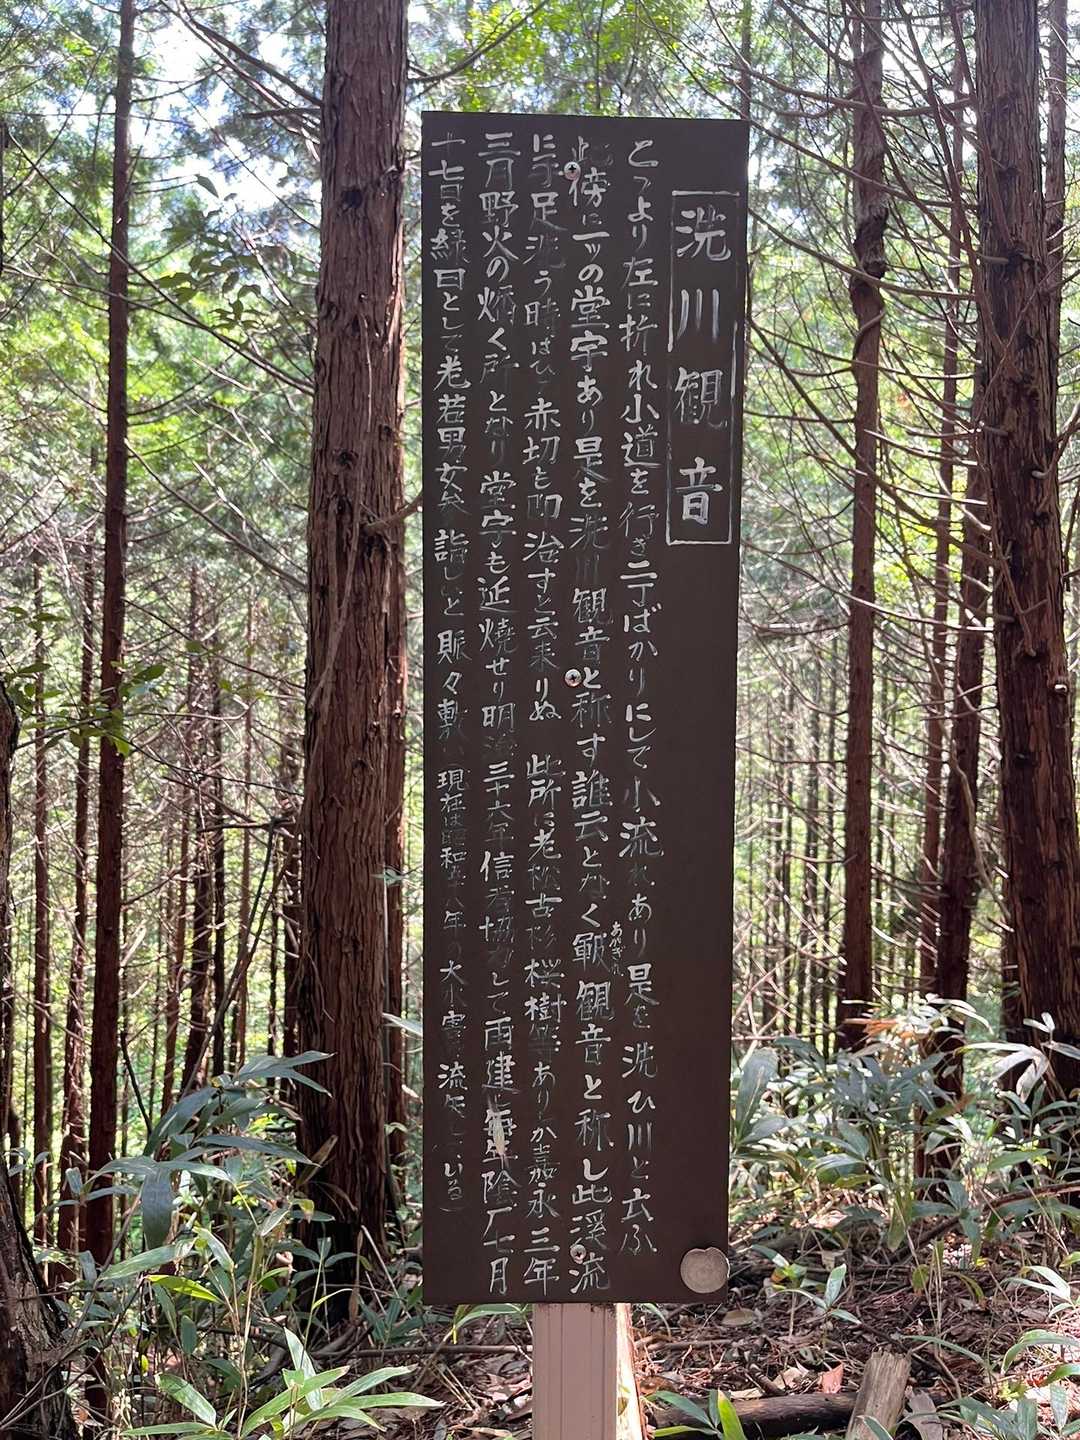 洗川観音
こゝより左に折れ小道を行き二丁ばかりにして小流れあり是を洗ひ川と云ふ
此傍に一ツの堂宇あり是を洗川観音と称す誰云となく皸観音と称し此渓流
あかぎれ
に手足洗う時はひゞ赤切も即治すと云来りぬ 此所に老松古杉桜樹等ありしか嘉永三年
三月野火の燔く所となり堂宇も延焼せり明治三十六年信者協力して再建し毎年陰厂七月
十七日を縁日として老若男女参詣しいと賑々敷い(現在は昭和 八年の大水害 流失している)